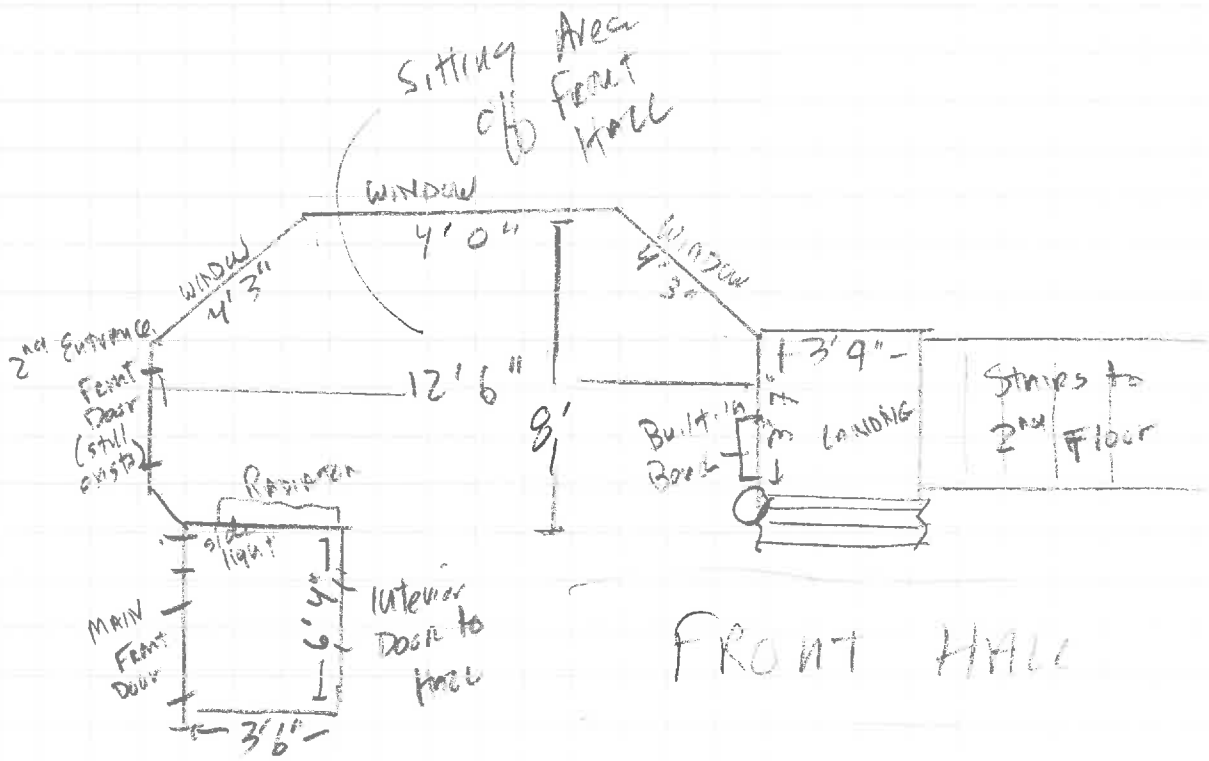 Sitting Area
o/o Front
HALL
WINDOW
4' 0"
WINDOW
4' 3"
WINDOW
4' 3"
2nd Entrance
Front
Door
(still
exists)
12' 6"
8'
3' 9"
3' 7"
LANDING
Stairs to
2nd Floor
Built-in
Bench
RADIATOR
side
light
MAIN
FRONT
DOOR
6' 4"
Interior
DOOR to
HALL
3' 6"
FRONT HALL